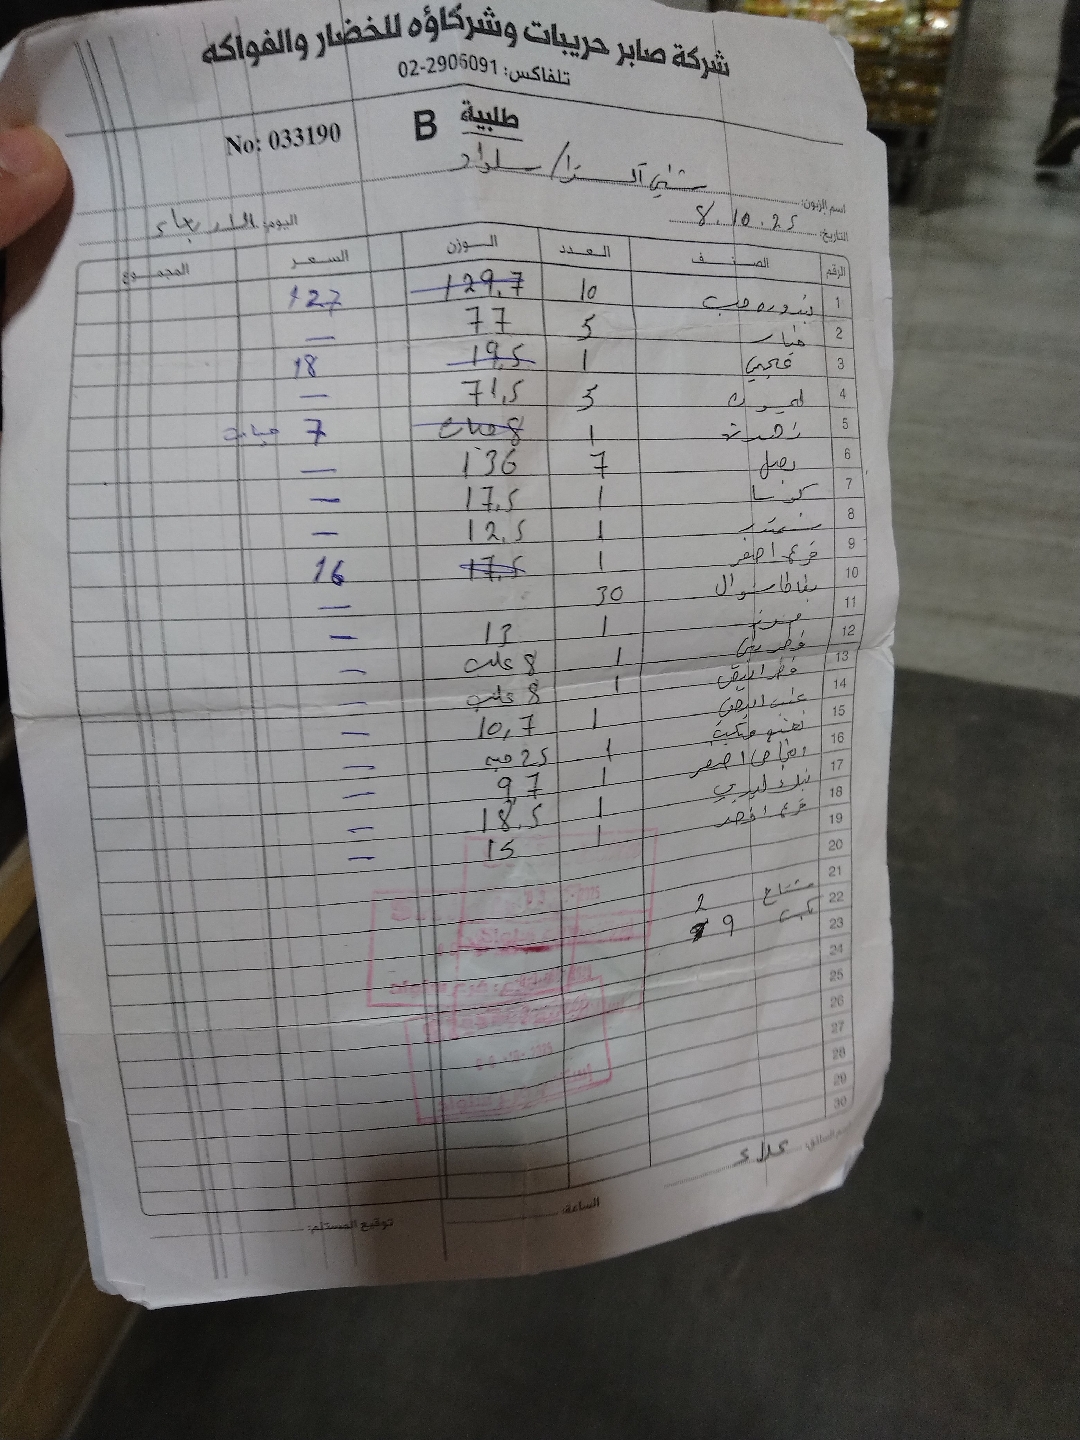 شركة صابر حريبات وشركاؤه للخضار والفواكه
تلفاكس: 02-2906091
طلبية B No: 033190
اسم الزبون: سلواد
التاريخ: 8.10.25 اليوم: الاربعاء
الرقم الصنف العدد الوزن السعر المجموع
1 بندوره حب 10 129,7 127
2 خيار 5 77 —
3 1 19,5 18
4 ليمون 3 71,5 —
5 زهرة 1 8 حبات 7 حبات
6 بصل 7 136 —
7 كوسا 1 17,5 —
8 شمندر 1 12,5 —
9 قرع اصفر 1 17,5 16
10 بطاطا 30 —
11 1 13 —
12 فطر بني 1 8 علب —
13 فطر ابيض 1 8 علب —
14 عنب ابيض 1 10,7 —
15 1 25 حبه —
16 اصفر 1 97 —
17 1 18,5 —
18 قرع اخضر 1 15 —
19
20
21
22 مشتاح 2
23 9
24
25
26
27
28
29
30
اسم السائق: علاء
الساعة:
توقيع المستلم: